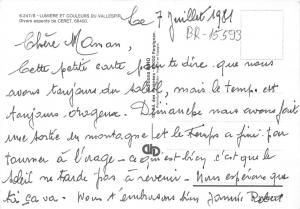 6.247/8 - LUMIERE ET COULEURS DU VALLESPIR
Divers aspects de CERET. 66400.
Le 7 Juillet 1981
BR-15593
Chère Maman,
Cette petite carte pour te dire que nous
avons toujours du soleil, mais le temps est
toujours orageux. Dimanche nous avons fait
une sortie en montagne et le temps a fini par
tourner à l'orage - ce qui est bien, c'est que le
soleil ne tarde pas à revenir - Nous espérons que
toi ça va. Nous t'embrassons bien